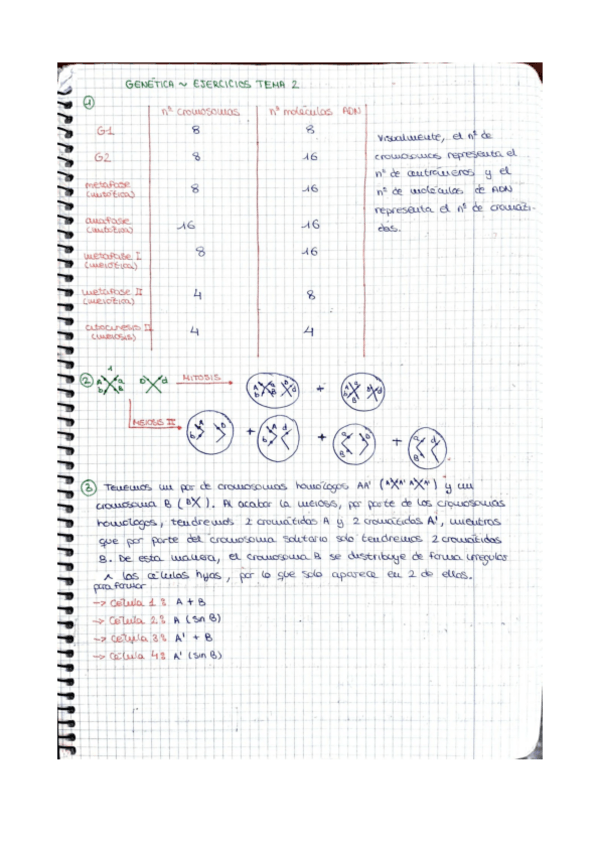 GENÉTICA ~ EJERCICIOS TEMA 2
1
nº cromosomas nº moléculas ADN
G1 8 8
G2 8 16
metafase (mitótica) 8 16
anafase (mitótica) 16 16
metafase I (meiótica) 8 16
metafase II (meiótica) 4 8
citocinesis II (meiosis) 4 4
Visualmente, el nº de
cromosomas representa el
nº de centrómeros y el
nº de moléculas de ADN
representa el nº de cromáti-
das.
2 A a b B D d MITOSIS +
MEIOSIS II + + +
3 Tenemos un par de cromosomas homólogos AA' (AXA' AXA') y un
cromosoma B (BX). Al acabar la meiosis, por parte de los cromosomas
homólogos, tendremos 2 cromátidas A y 2 cromátidas A', mientras
que por parte del cromosoma solitario solo tendremos 2 cromátidas
B. De esta manera, el cromosoma B se distribuye de forma irregular
para formar las células hijas, por lo que solo aparece en 2 de ellas.
→ Célula 1: A + B
→ Célula 2: A (sin B)
→ Célula 3: A' + B
→ Célula 4: A' (sin B)